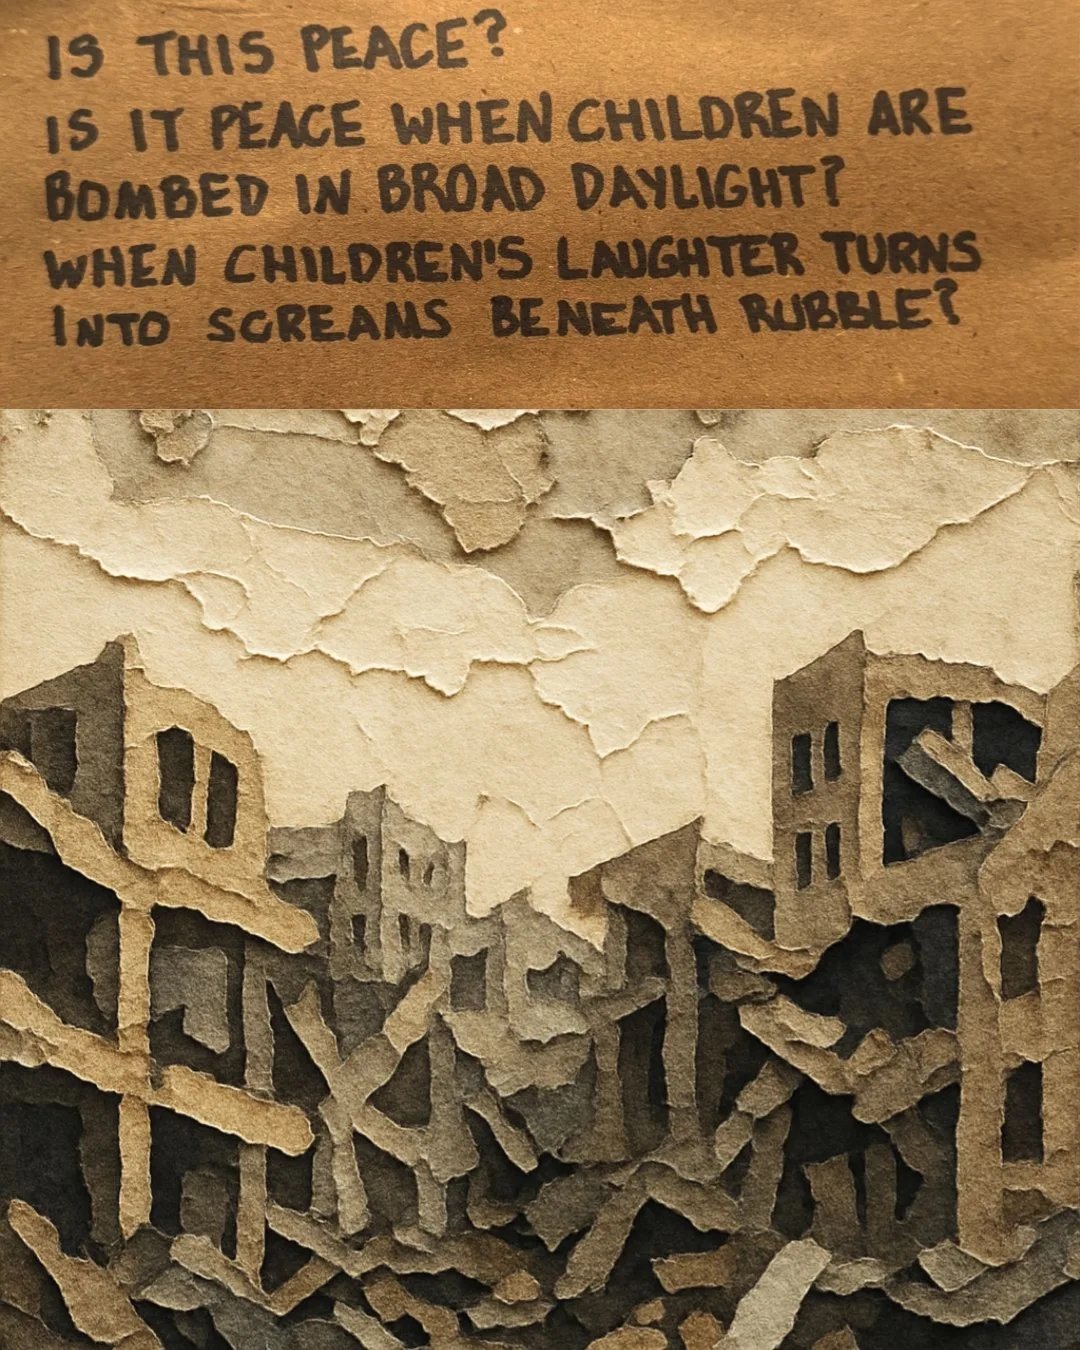 IS THIS PEACE?
IS IT PEACE WHEN CHILDREN ARE
BOMBED IN BROAD DAYLIGHT?
WHEN CHILDREN'S LAUGHTER TURNS
INTO SCREAMS BENEATH RUBBLE?